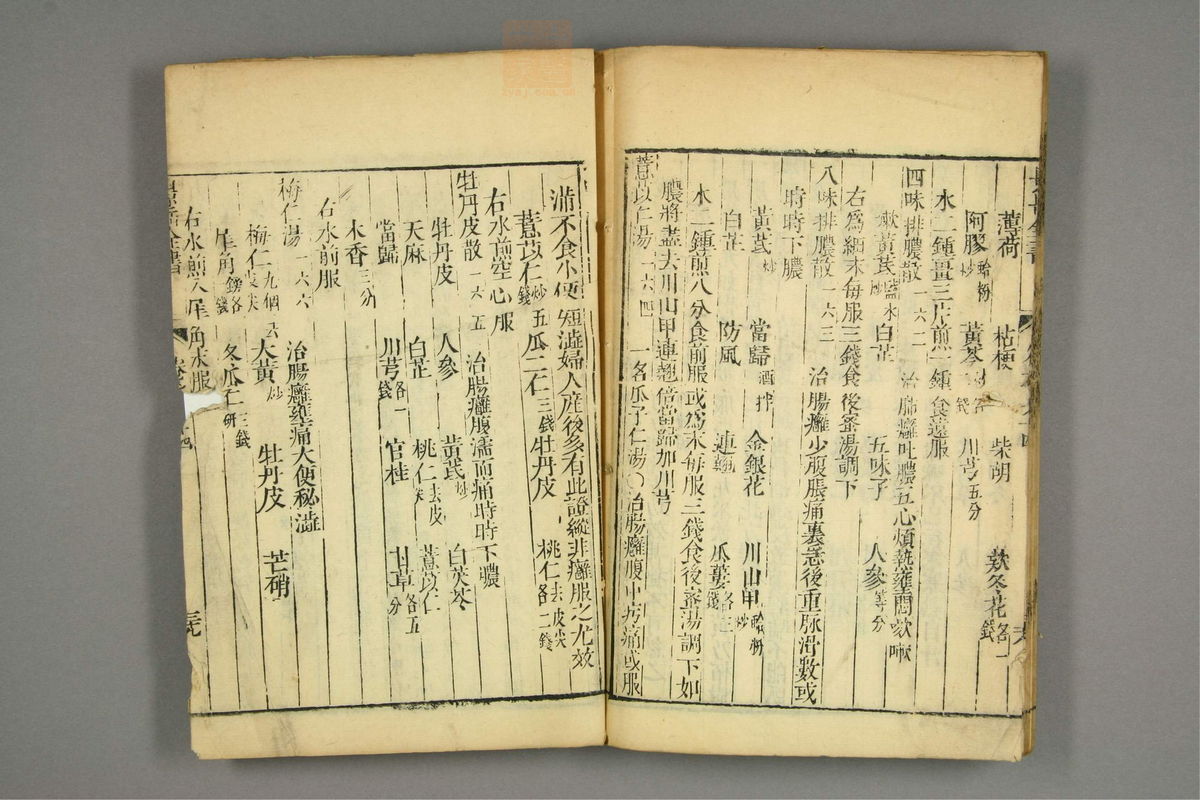 薄荷 桔梗 柴胡 欵冬花各一錢
阿膠蛤粉炒 黃芩 川芎五分
水二鍾薑三片煎一鍾食遠服
四味排膿散一六二 治肺癰吐膿五心煩熱壅悶欬嗽
嫩黃芪鹽水炒 白芷 五味子 人參等分
右爲細末每服三錢食後蜜湯調下
八味排膿散一六三 治腸癰少腹脹痛裏急後重脉滑數或
時時下膿
黃芪炒 當歸酒拌 金銀花 川山甲蛤粉炒
白芷 防風 連翹 瓜蔞各二錢
水二鍾煎八分食前服或爲末每服三錢食後蜜湯調下如
膿將盡去川山甲連翹倍當歸加川芎
薏苡仁湯一六四 一名瓜子仁湯○治腸癰腹中疠痛或服
滿不食小便短澁婦人産後多有此證縱非癰服之尤效
薏苡仁炒五錢 瓜蔞仁三錢 牡丹皮 桃仁去皮尖各二錢
右水煎空心服
牡丹皮散一六五 治腸癰腹濡而痛時時下膿
牡丹皮 人參 黃芪炒 白茯苓
天麻 白芷 桃仁去皮尖 薏苡仁
當歸 川芎各一錢 官桂 甘草各五分
木香三分
右水煎服
梅仁湯一六六 治腸癰壅痛大便秘澁
梅仁九個去皮尖 大黃炒 牡丹皮 芒硝
犀角鎊各一錢 冬瓜仁研三錢
右水煎入犀角末服